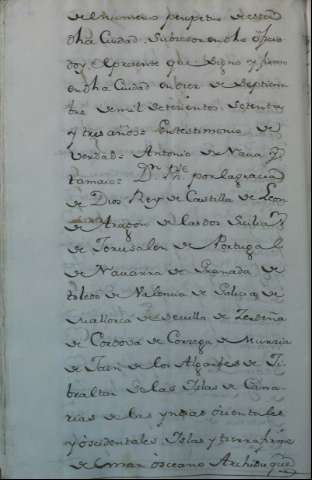 del numero perpetuo de esta
dha Ciudad. Subcesor en dho oficio
doy el presente que signo y firmo
en dha Ciudad en diez de Septiem
bre de mil setecientos setenta
y tres años. En testimonio de
verdad. Antonio de Nava y
tamaio = Dn. Phe. por la gracia
de Dios Rey de Castilla de Leon
de Aragon de las dos Sicilias
de Jerusalen de Portugal
de Navarra de Granada de
toledo de Valencia de Galicia de
Mallorca de Sevilla de Zerdeña
de Cordova de Corsega de Murzia
de Jaen de los Algarbes de Ji
braltar de las Islas de Cana
rias de las yndias orientales
y ocsidentales Islas y tierra firme
de el mar osceano Archiduque